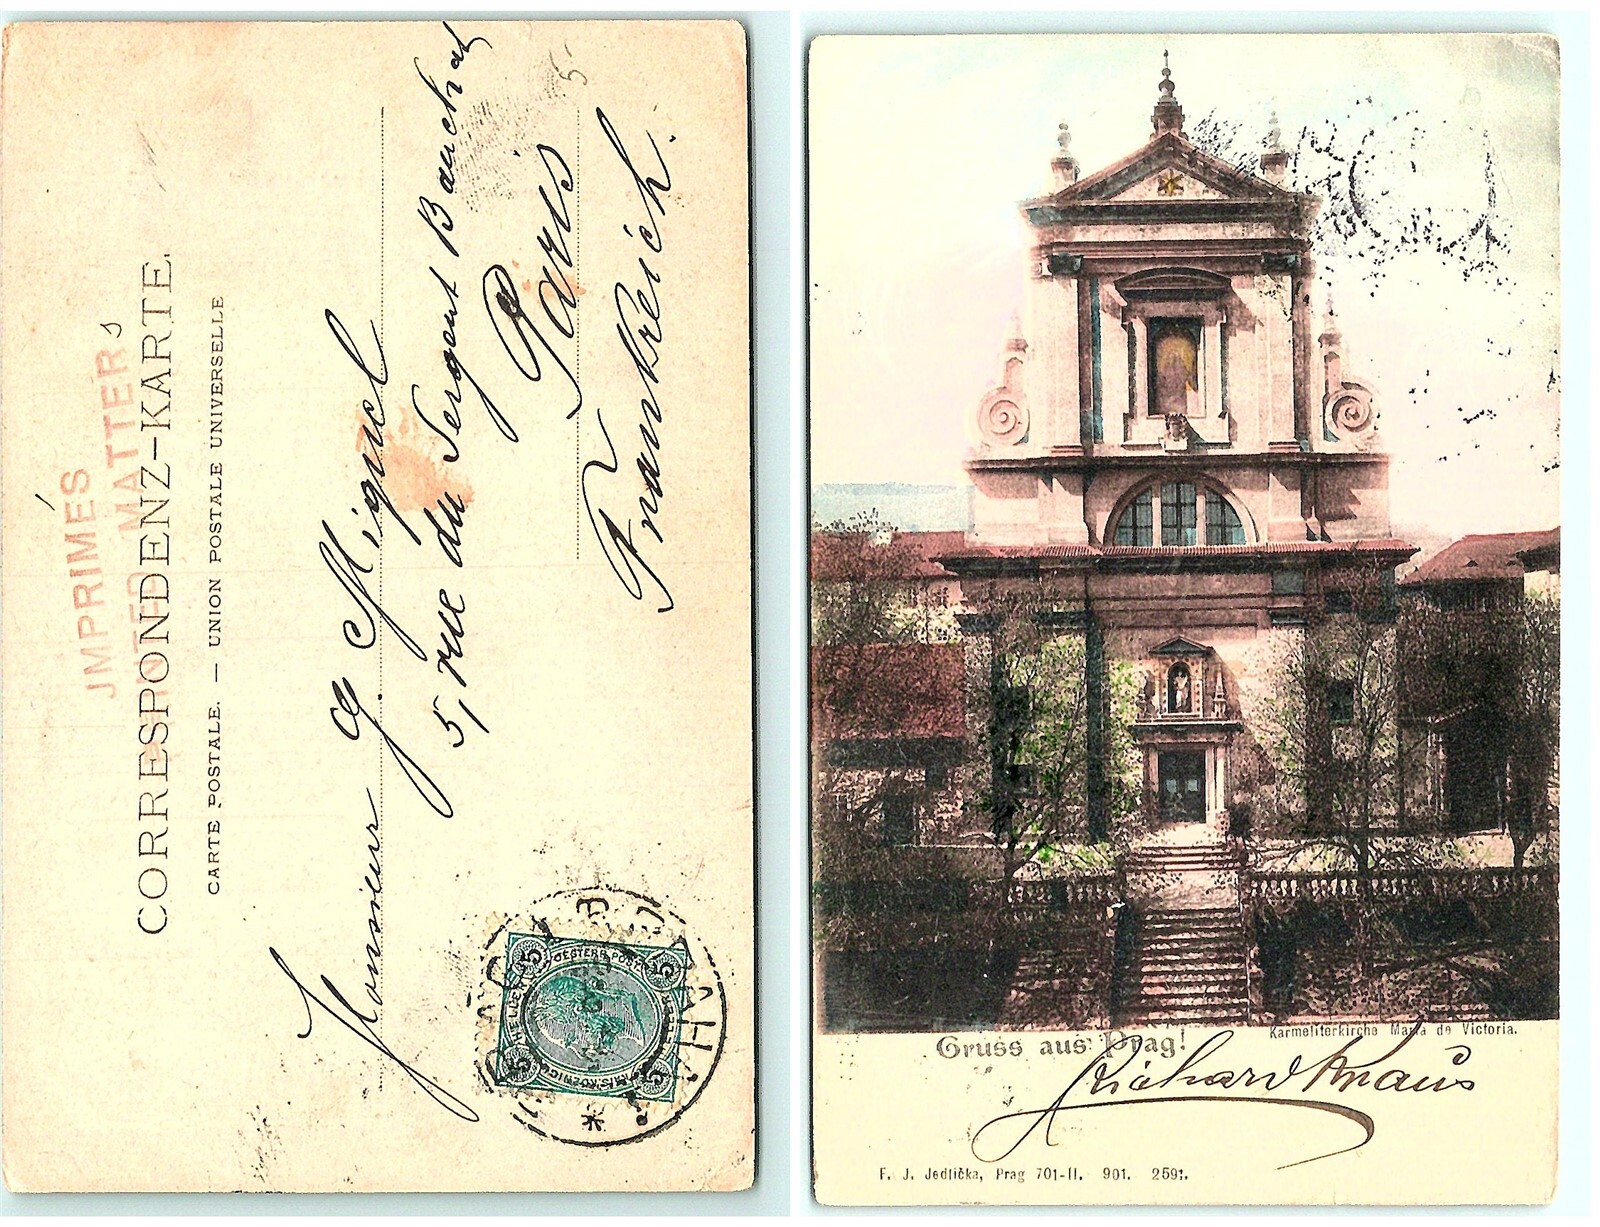 JMPRIMÉS
PRINTED MATTER
CORRESPONDENZ-KARTE.
CARTE POSTALE. — UNION POSTALE UNIVERSELLE
Monsieur G. Miguel
5, rue du Sergent Bauchat
Paris
Paris
Frankreich.
5
5
5
5
OESTERR. POST
HELLER
KAIS. KOENIGL.
Gruss aus Prag!
Karmeliterkirche Maria de Victoria.
Richard Knaus
F. J. Jedlička, Prag 701-II. 901. 2591.